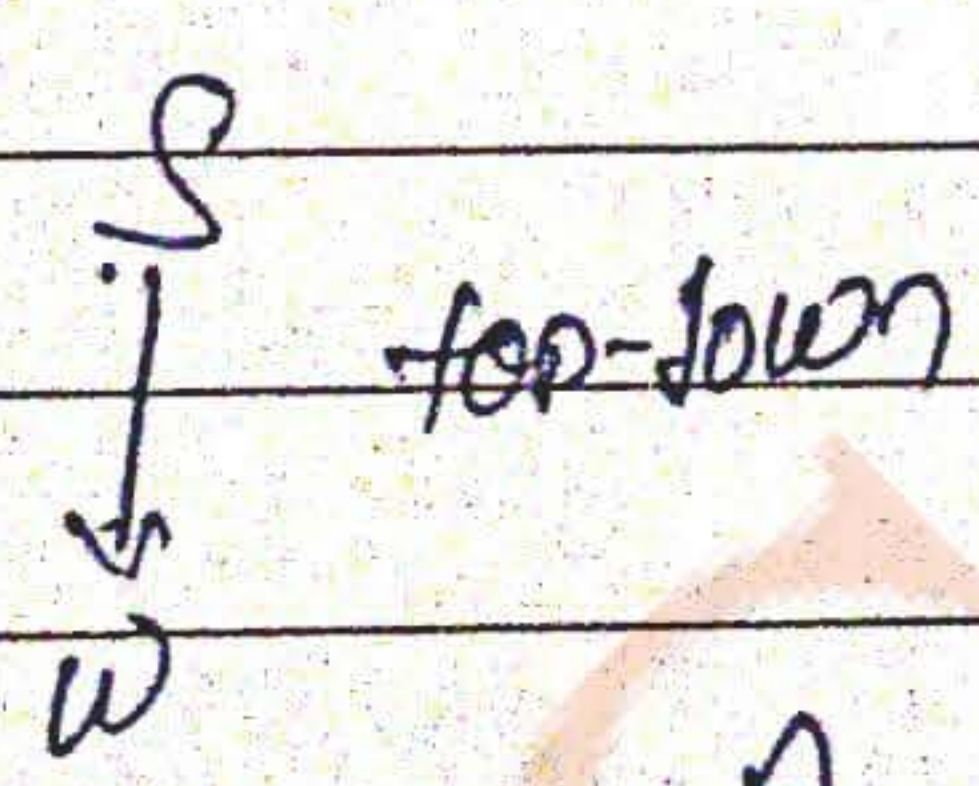 S
top-down
w